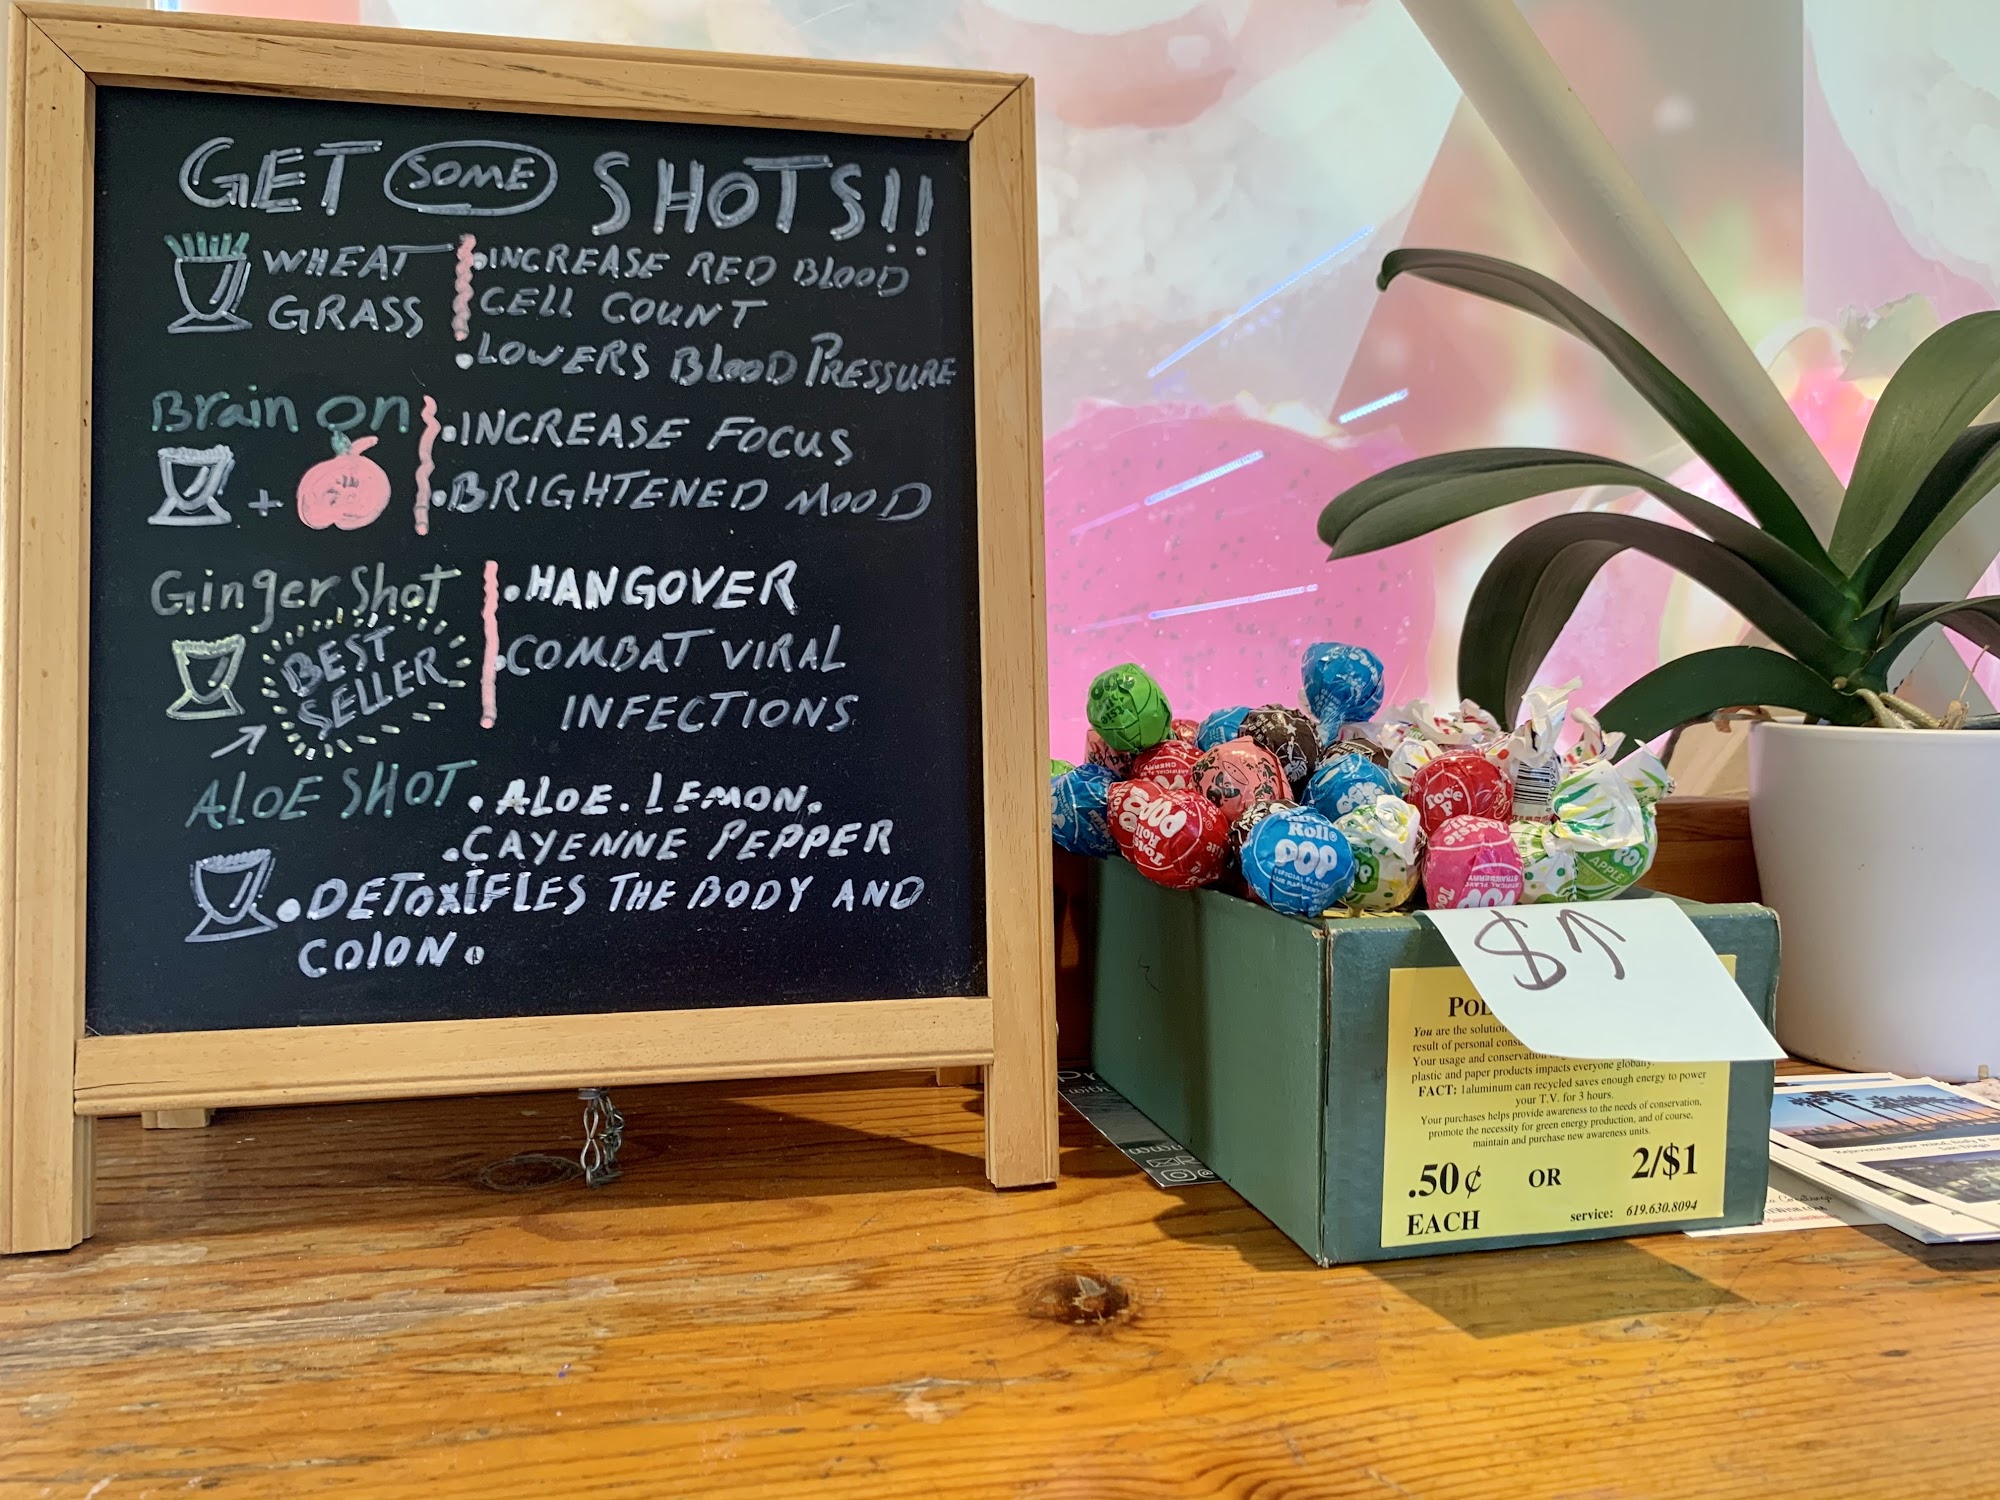 GET SOME SHOTS!!
WHEAT GRASS
.INCREASE RED BLOOD
CELL COUNT
.LOWERS BLOOD PRESSURE
Brain on
+
.INCREASE FOCUS
.BRIGHTENED MOOD
Ginger Shot
BEST
SELLER
.HANGOVER
.COMBAT VIRAL
INFECTIONS
ALOE SHOT
.ALOE. LEMON.
.CAYENNE PEPPER
.DETOXIFLES THE BODY AND
COLON.
Tootsie
Roll
POP
CHERRY
Roll
POP
Tootsie
POP
STRAWBERRY
APPLE
$1
You are the solution
result of personal
Your usage and conservation
plastic and paper products impacts everyone globally.
FACT: 1aluminum can recycled saves enough energy to power
your T.V. for 3 hours.
Your purchases helps provide awareness to the needs of conservation,
promote the necessity for green energy production, and of course,
maintain and purchase new awareness units.
.50¢ OR 2/$1
EACH
service: 619.630.8094
San Diego